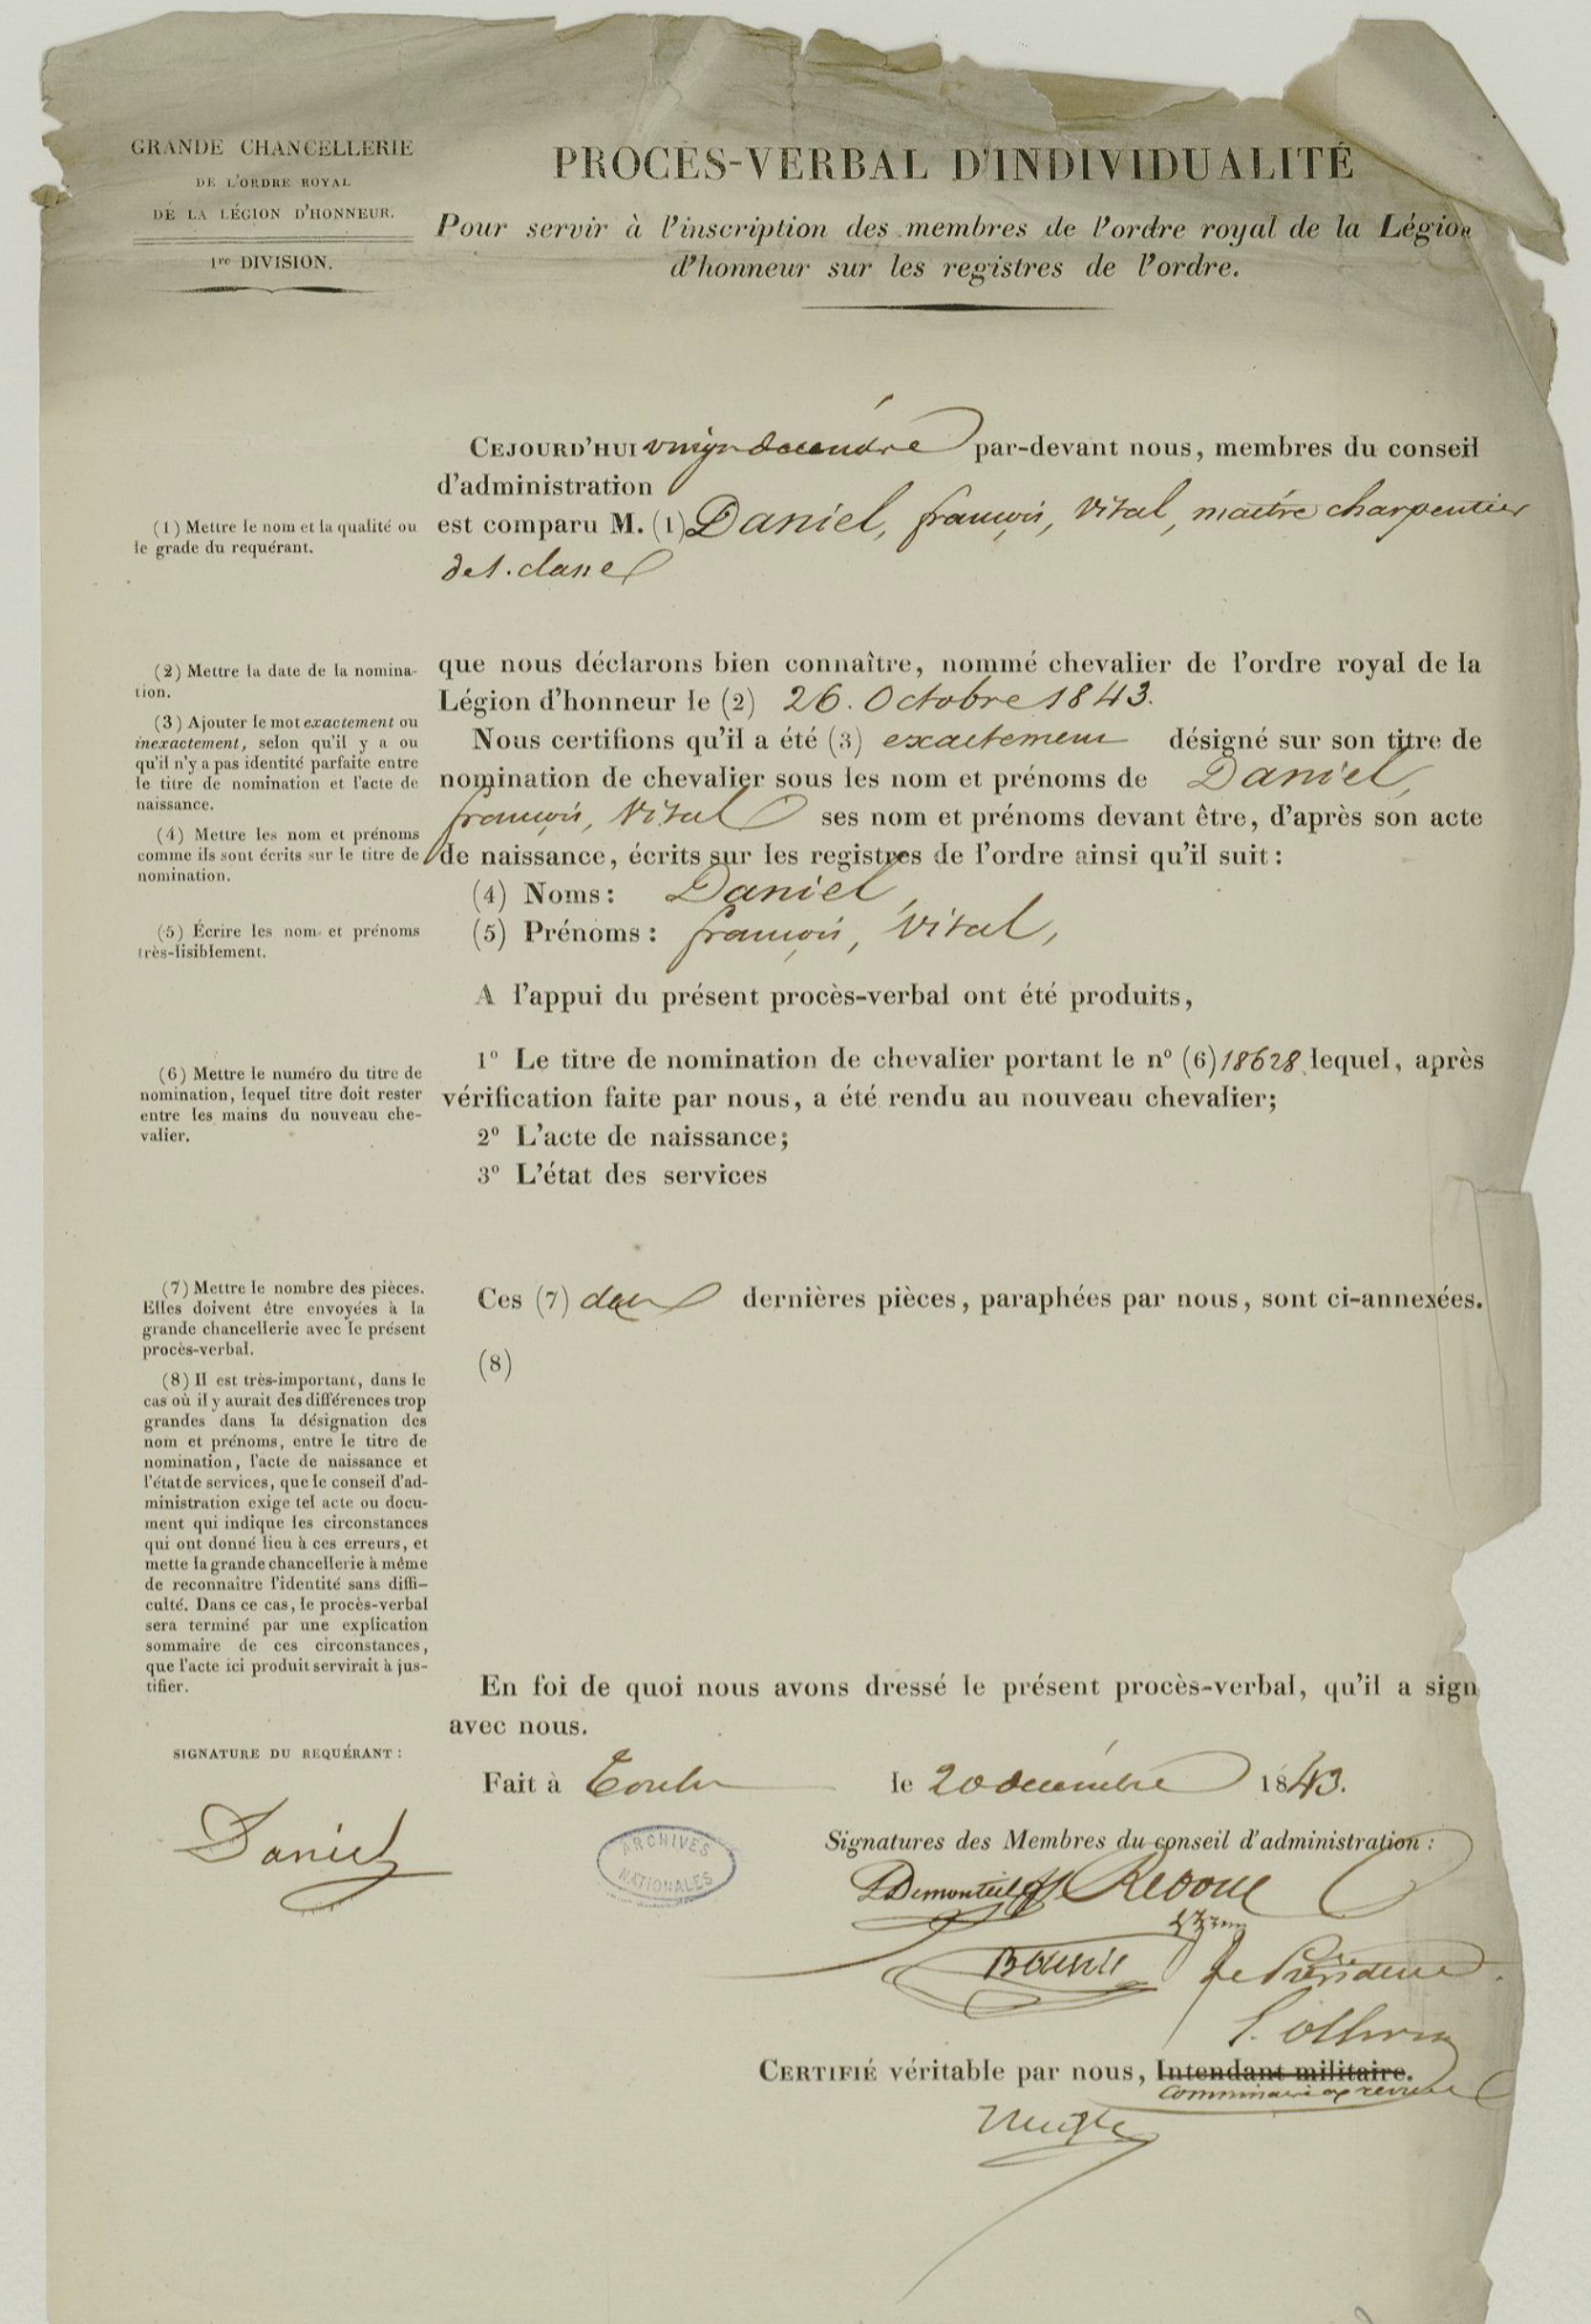 GRANDE CHANCELLERIE
DE L'ORDRE ROYAL
DE LA LÉGION D'HONNEUR.
1re DIVISION.
PROCÈS-VERBAL D'INDIVIDUALITÉ
Pour servir à l'inscription des membres de l'ordre royal de la Légion
d'honneur sur les registres de l'ordre.
CEJOURD'HUI vingt décembre par-devant nous, membres du conseil
d'administration
est comparu M. (1) Daniel, françois, Vital, maître charpentier
de 1. classe
(1) Mettre le nom et la qualité ou
le grade du requérant.
que nous déclarons bien connaître, nommé chevalier de l'ordre royal de la
Légion d'honneur le (2) 26. Octobre 1843.
Nous certifions qu'il a été (3) exactement désigné sur son titre de
nomination de chevalier sous les nom et prénoms de Daniel,
françois, Vital ses nom et prénoms devant être, d'après son acte
de naissance, écrits sur les registres de l'ordre ainsi qu'il suit :
(4) Noms : Daniel,
(5) Prénoms : françois, Vital,
(2) Mettre la date de la nomina-
tion.
(3) Ajouter le mot exactement ou
inexactement, selon qu'il y a ou
qu'il n'y a pas identité parfaite entre
le titre de nomination et l'acte de
naissance.
(4) Mettre les nom et prénoms
comme ils sont écrits sur le titre de
nomination.
(5) Écrire les nom et prénoms
très-lisiblement.
A l'appui du présent procès-verbal ont été produits,
1° Le titre de nomination de chevalier portant le n° (6) 18628 lequel, après
vérification faite par nous, a été rendu au nouveau chevalier;
2° L'acte de naissance;
3° L'état des services
(6) Mettre le numéro du titre de
nomination, lequel titre doit rester
entre les mains du nouveau che-
valier.
Ces (7) deux dernières pièces, paraphées par nous, sont ci-annexées.
(8)
(7) Mettre le nombre des pièces.
Elles doivent être envoyées à la
grande chancellerie avec le présent
procès-verbal.
(8) Il est très-important, dans le
cas où il y aurait des différences trop
grandes dans la désignation des
nom et prénoms, entre le titre de
nomination, l'acte de naissance et
l'état de services, que le conseil d'ad-
ministration exige tel acte ou docu-
ment qui indique les circonstances
qui ont donné lieu à ces erreurs, et
mette la grande chancellerie à même
de reconnaître l'identité sans diffi-
culté. Dans ce cas, le procès-verbal
sera terminé par une explication
sommaire de ces circonstances,
que l'acte ici produit servirait à jus-
tifier.
En foi de quoi nous avons dressé le présent procès-verbal, qu'il a sign
avec nous.
Fait à Toulon le 20 décembre 1843.
SIGNATURE DU REQUÉRANT :
Daniel
ARCHIVES
NATIONALES
Signatures des Membres du conseil d'administration :
Demonteil
Le Président
CERTIFIÉ véritable par nous, Intendant militaire.
Commissaire aux revues